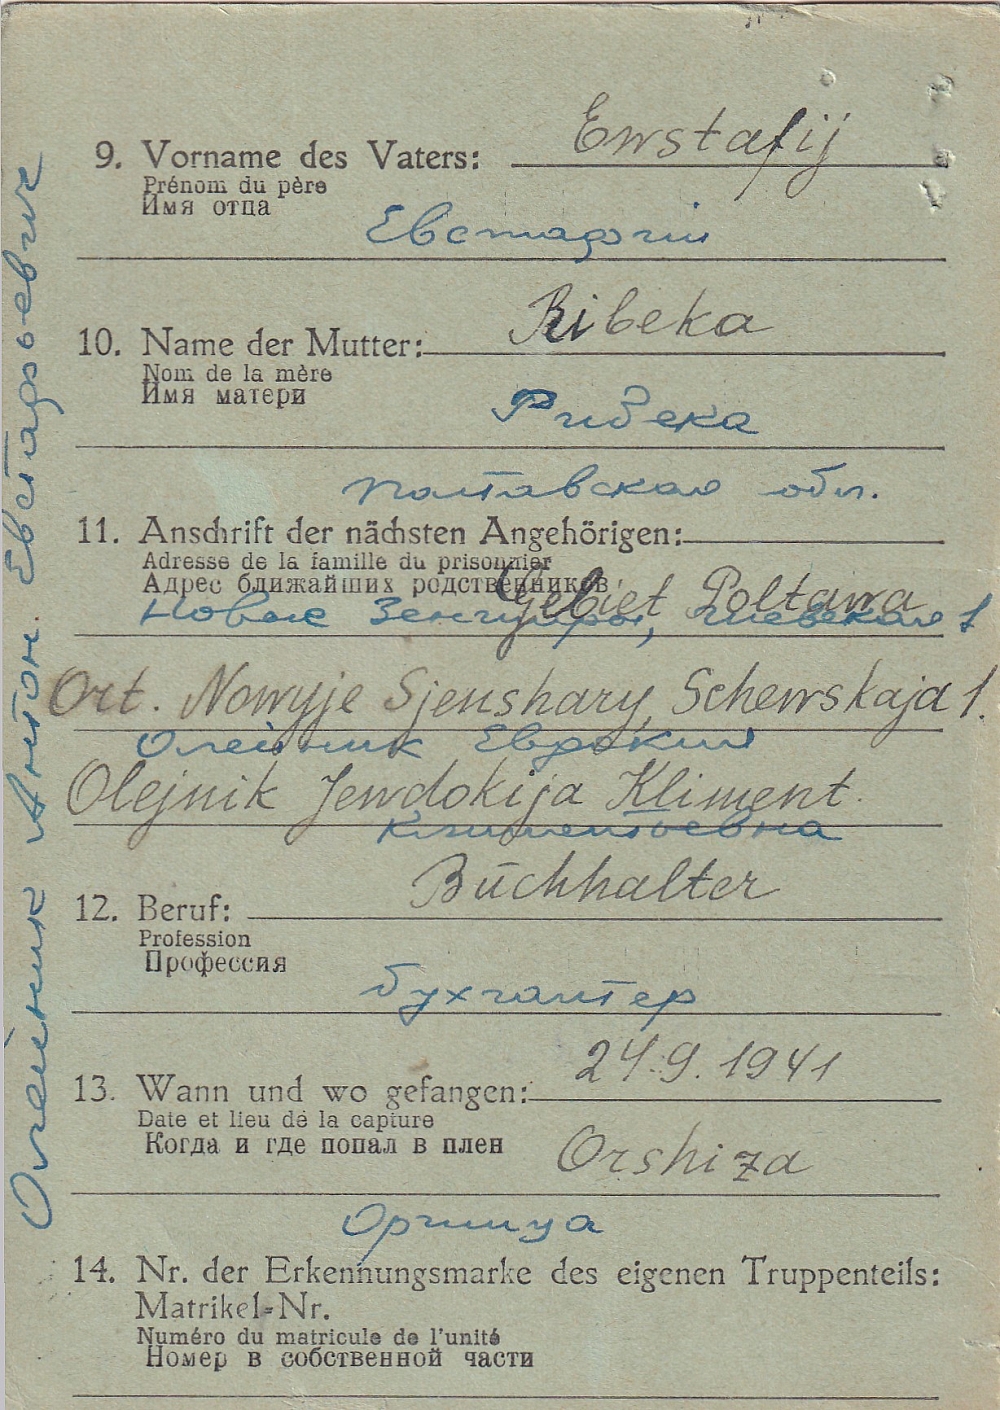 9. Vorname des Vaters: Ewstafij
Prénom du père
Имя отца
Евстафий
10. Name der Mutter: Ribeka
Nom de la mère
Имя матери
Рибека
Полтавская обл.
11. Anschrift der nächsten Angehörigen:
Adresse de la famille du prisonnier
Адрес ближайших родственников
Gebiet Poltawa
Новые Сенжары, 1
Ort. Nowyje Sjenshary, Schewskaja 1.
Олейник Евдокия
Olejnik Jewdokija Kliment.
Климентьевна
12. Beruf: Buchhalter
Profession
Профессия
бухгалтер
13. Wann und wo gefangen: 24.9.1941
Date et lieu de la capture
Когда и где попал в плен
Orshiza
Оржица
14. Nr. der Erkennungsmarke des eigenen Truppenteils:
Matrikel-Nr.
Numéro du matricule de l'unité
Номер в собственной части
Олейник Антон. Евстафьевич